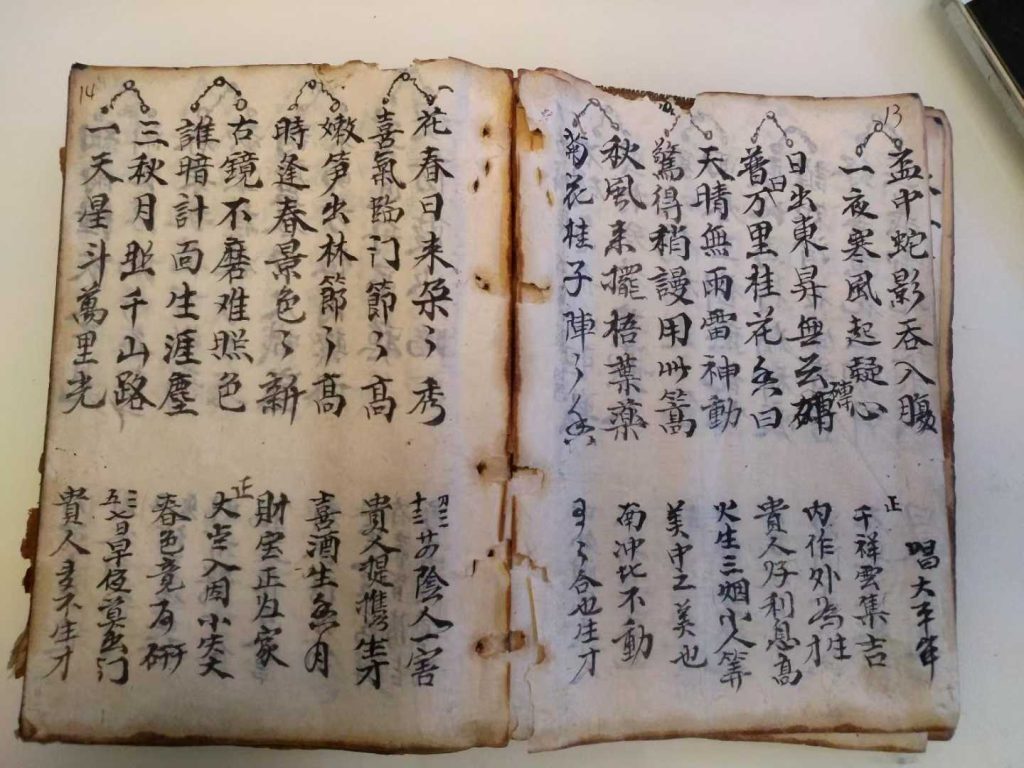 13
盃中蛇影吞入腹
一夜寒風起疑心
日出東昇無云
普万里桂花香曰
天晴無雨雷神動
驚得稍謾用篙
秋風来擺梧葉藥
菊花桂子陣〻香
唱太平年
正
千祥雲集吉
内作外為性
貴人好利息高
火生三烟小人算
美中工美也
南冲北不動
合也生才
14
花春日来朶〻秀
喜氣臨门節〻高
嫩笋出林節〻高
時逢春景色〻新
古鏡不磨难照色
誰暗計面生涯塵
三秋月照千山路
一天星斗萬里光
廿四陰人一害
貴人提携生才
喜酒生香月
財宝正归家
正
入周小失大
春色竟
五七日早夜莫出门
貴人不生才